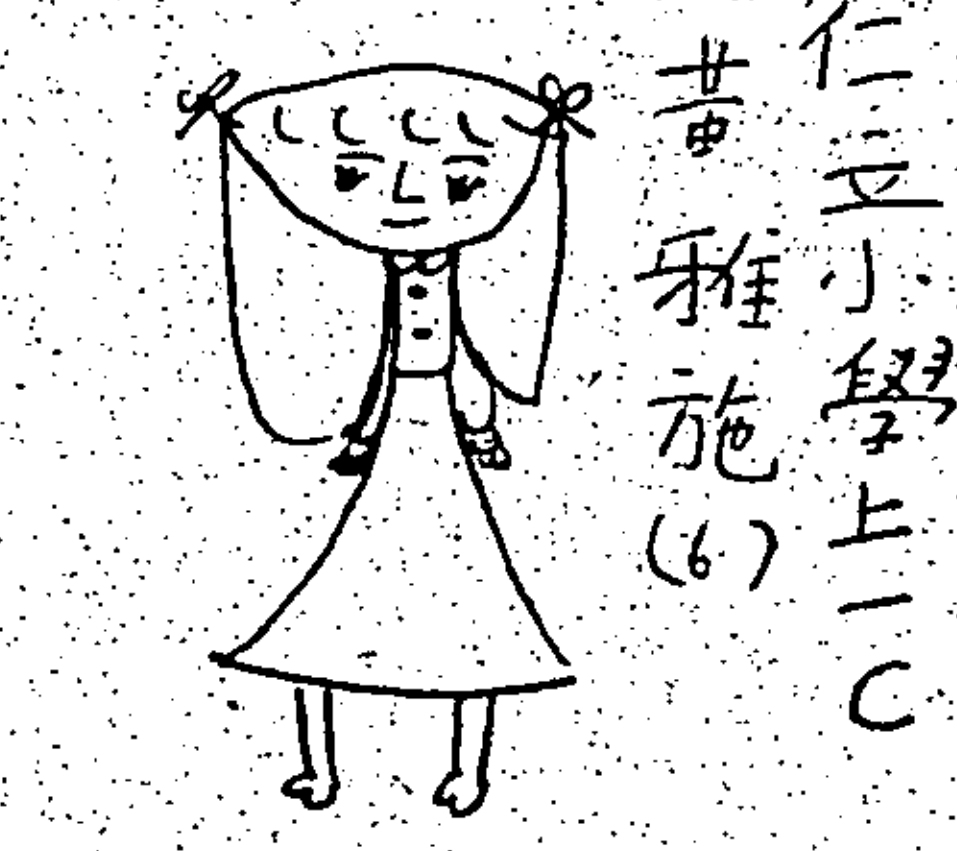 仁立小學上一C
黃雅施(6)